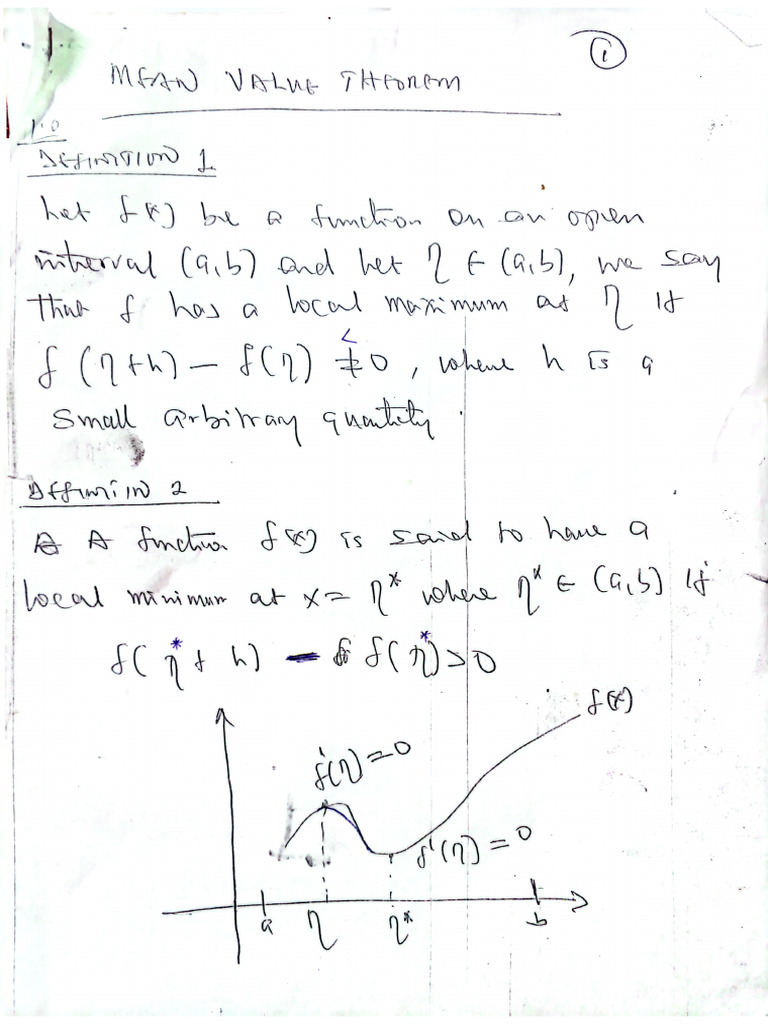 ①
MEAN VALUE THEOREM
1.0
DEFINITION 1
Let f(x) be a function on an open
interval (a,b) and let η ∈ (a,b), we say
that f has a local maximum at η if
<
f (η+h) — f(η) ≠0, where h is a
small arbitrary quantity.
DEFINITION 2
A function f(x) is said to have a
local minimum at x = η* where η* ∈ (a,b) if
f(η* + h) — f(η*) > 0
f(x)
f'(η) = 0
f'(η) = 0
a η η* b